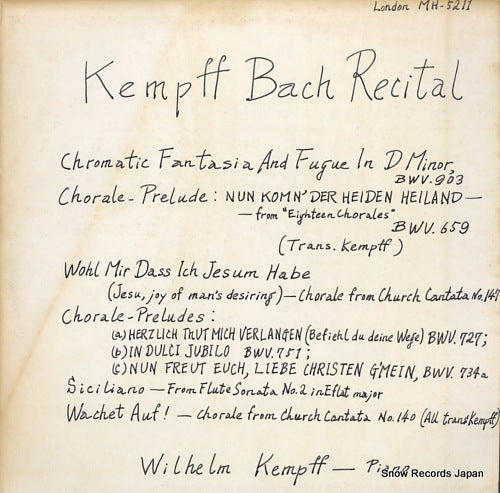 London MH-5211
Kempff Bach Recital
Chromatic Fantasia And Fugue In D Minor,
BWV.903
Chorale-Prelude: NUN KOMN' DER HEIDEN HEILAND—
—from "Eighteen Chorales"
BWV. 659
(Trans. Kempff)
Wohl Mir Dass Ich Jesum Habe
(Jesu, joy of man's desiring)—Chorale from Church Cantata No.147
Chorale-Preludes:
(a) HERZLICH THUT MICH VERLANGEN (Befiehl du deine Wege) BWV. 727;
(b) IN DULCI JUBILO BWV. 751;
(c) NUN FREUT EUCH, LIEBE CHRISTEN G'MEIN, BWV. 734a
Siciliano — From Flute Sonata No.2 in Eflat major
Wachet Auf! — chorale from Church Cantata No.140 (All trans Kempff)
Wilhelm Kempff — Piano
Snow Records Japan